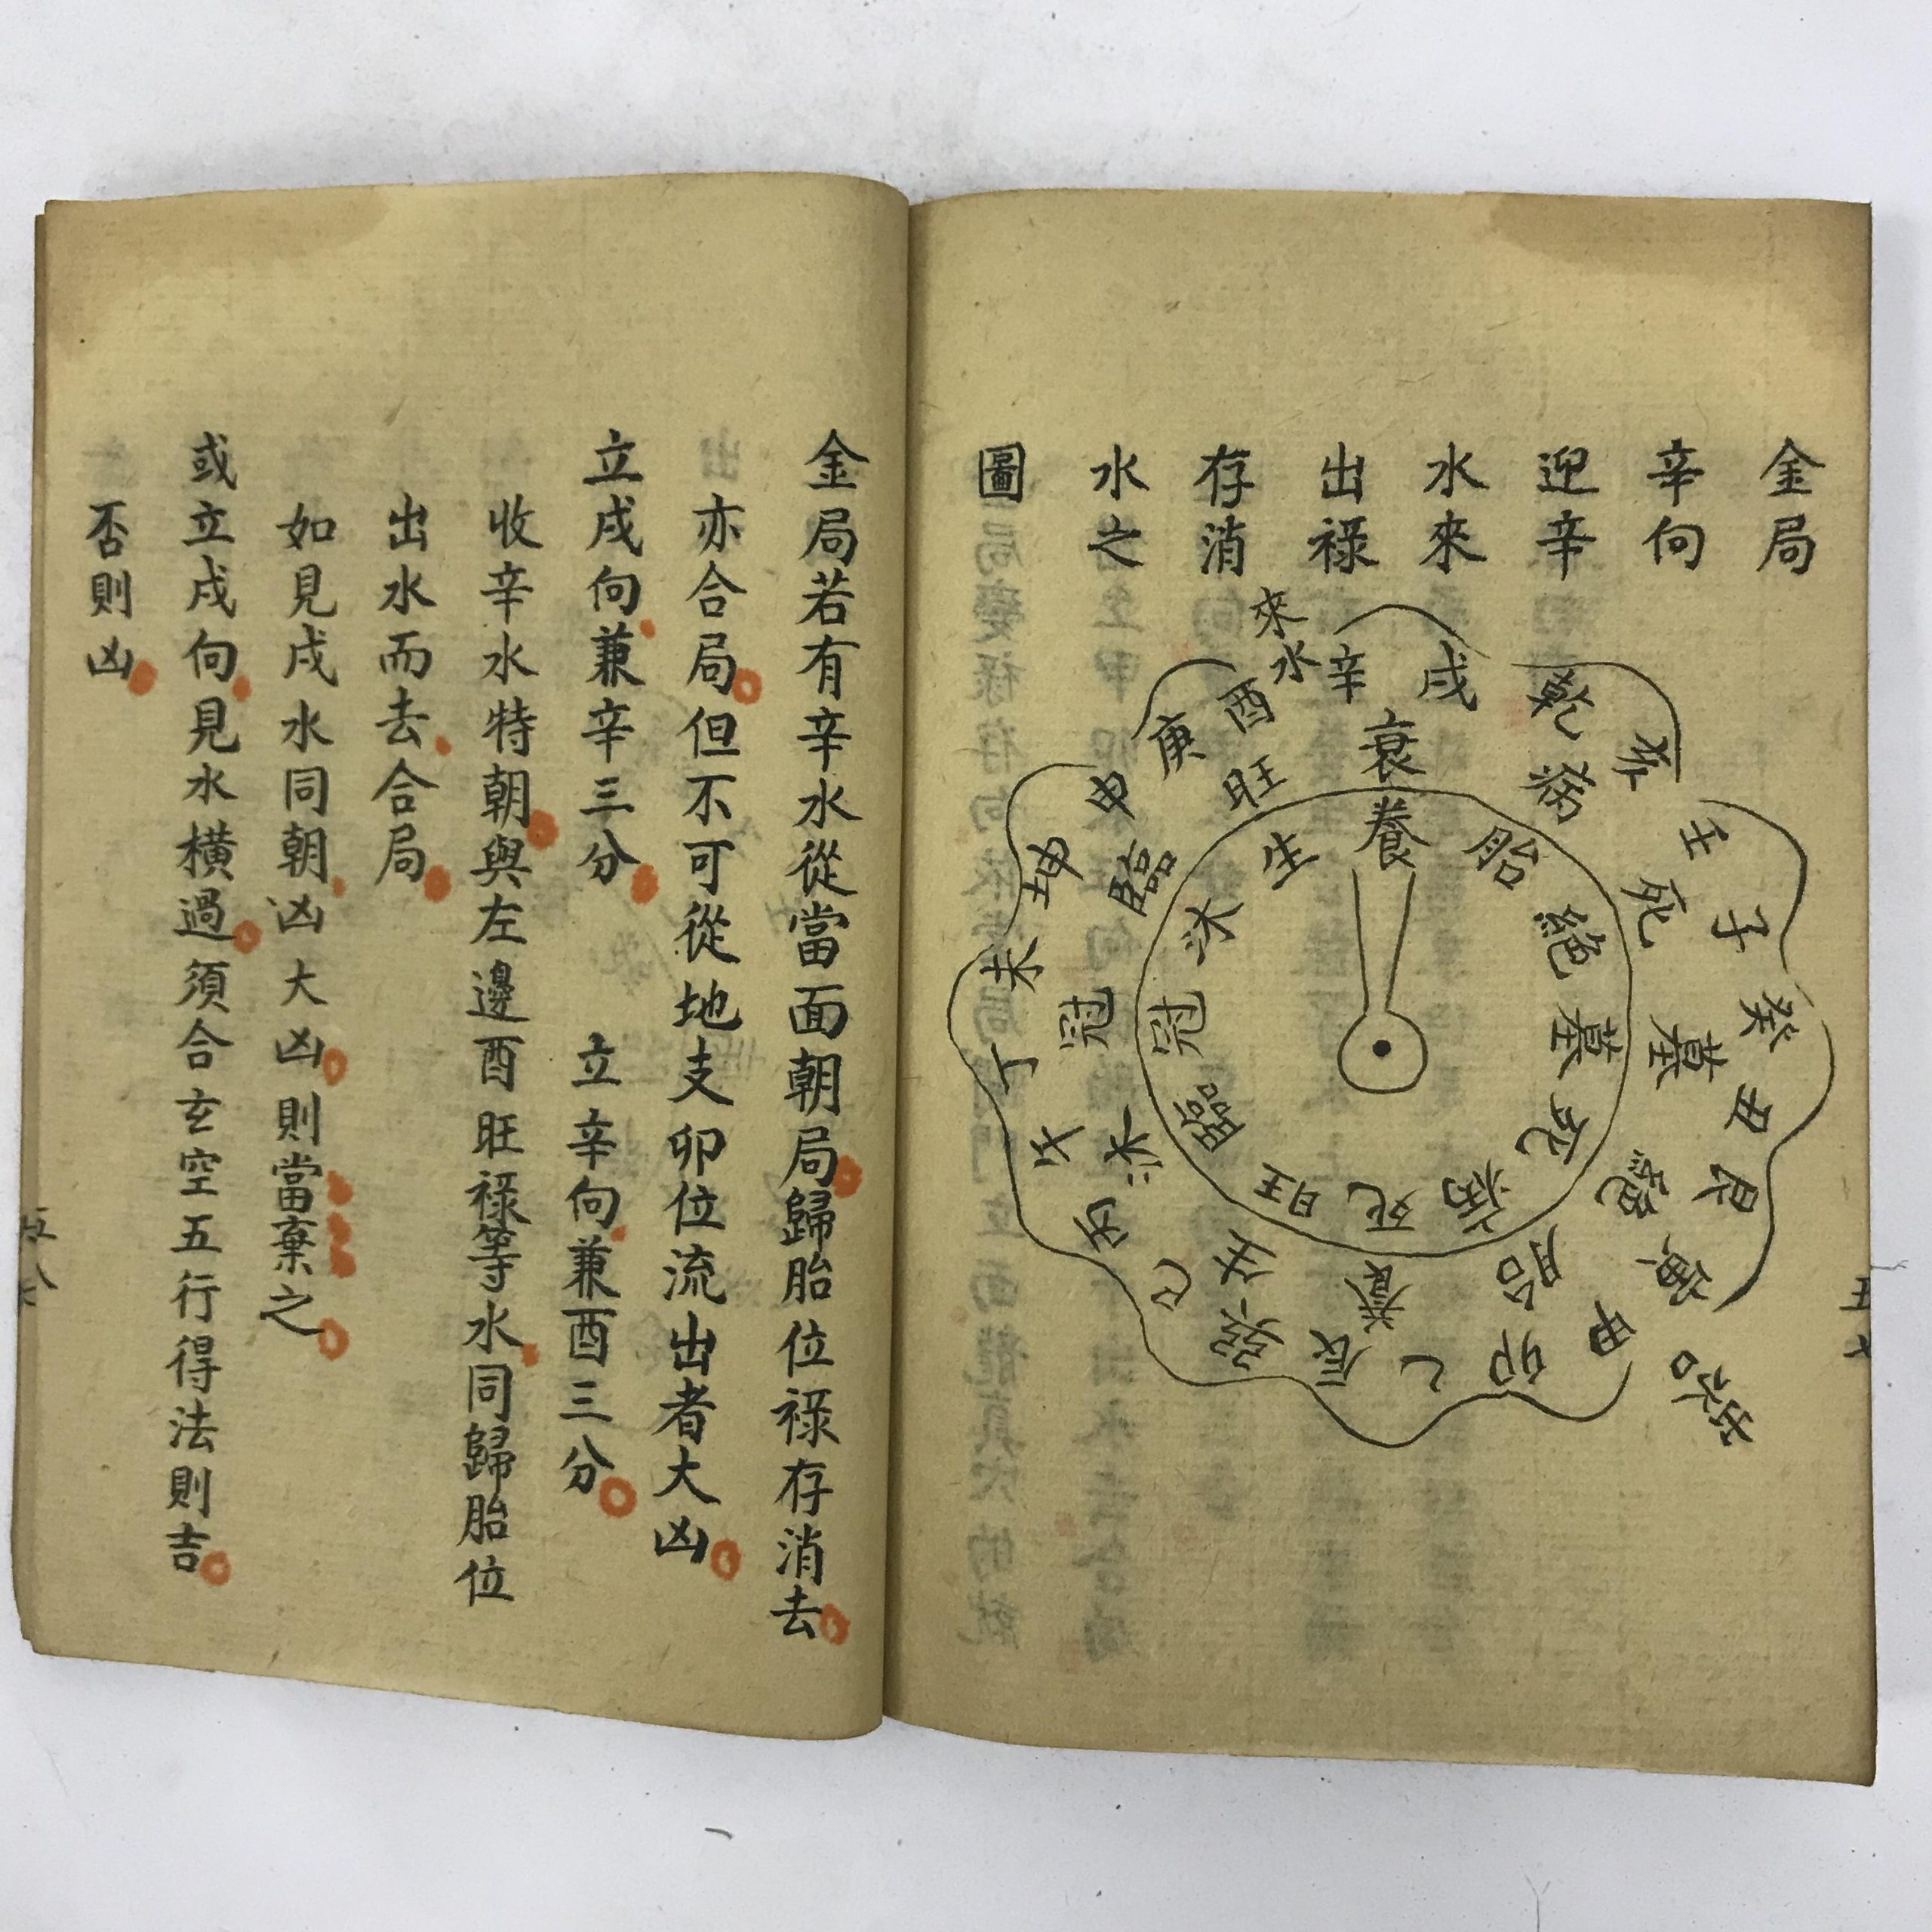 金局
辛向
迎辛
水來
出祿
存消
水之
圖
來水
辛戌
乾亥
壬子
癸丑
艮寅
甲卯
乙辰
巽巳
丙午
丁未
坤申
庚酉
衰
病
死
墓
絕
胎
養
生
沐
冠
臨
旺
養
胎
絕
墓
死
病
死
旺
臨
冠
沐
生
金局若有辛水從當面朝局歸胎位祿存消去
亦合局但不可從地支卯位流出者大凶
立戌向兼辛三分 立辛向兼酉三分
收辛水特朝與左邊酉旺祿等水同歸胎位
出水而去合局
如見戌水同朝凶大凶則當棄之
或立戌向見水橫過須合玄空五行得法則吉
否則凶
五八